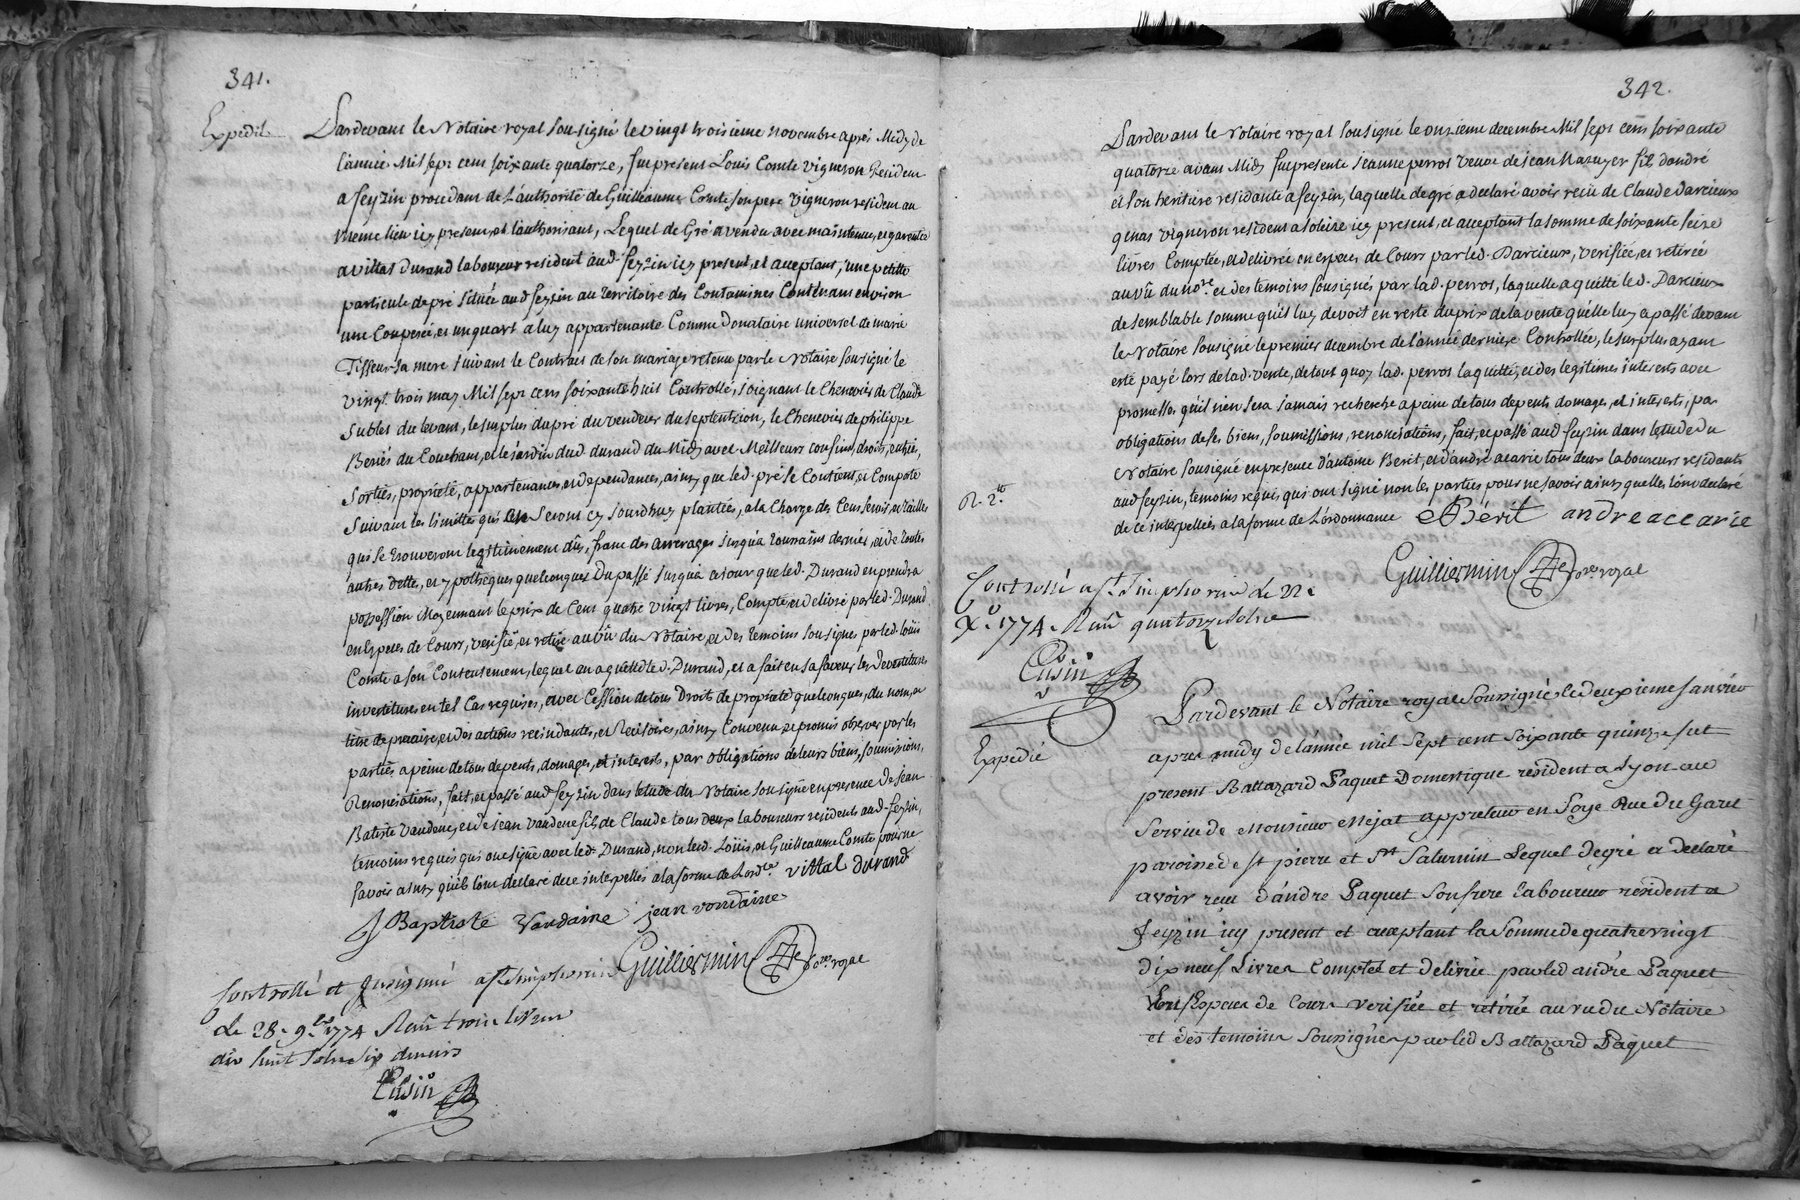 341.
Expedié
Pardevant le Notaire royal sousigné le vingt troisieme novembre aprés Midy de
l'année Mil sept cent soixante quatorze, fut present Louis Comte vigneron Resident
a feyzin procedant de L'authorité de Guilleaume Comte son pere vigneron resident au
meme lieu icy present, et l'authorisant, Lequel de Gré a vendu avec maintenue, et garentie
a vittal Durand laboureur resident aud. feyzin icy present, et acceptant, une petitte
particule de pré située aud. feyzin au territoire des Contamines Contenant environ
une Couperée, et un quart a luy appartenante Comme Donataire universel de marie
Tisseur sa mere suivant le Contract de son mariage retenu par le Notaire sousigné le
vingt trois may Mil sept cent soixante huit Controllé, joignant le Chenevier de Claude
Sublet du levant, le surplus du pré du vendeur du septentrion, le Chenevier de philippe
Beriés du Couchant, et le jardin dud. durand du Midy avec Meilleurs confins, droits, entrée,
sorties, proprieté, appartenances, et dependances, ainsy que led. pré se Contient, et Comporte
suivant les limittes qui seront cy jourdhuy plantées, a la Charge des Cens servis, et tailles
qui se trouveront legitimement dûs, franc des arrerages jusqu'a toussains dernier, et de toutes
autres dettes, et ypothèques quelconques Du passé jusqu'a ce jour que led. Durand en prendra
possession Moyennant le prix de Cent quatre vingt livres, Compté, et delivré par led. Durand
en Especes de Cours, verifié, et retiré au vû du Notaire, et des temoins sousignes par led. loüis
Comte a son Contentement, lequel en a quitté led. Durand, et a fait en sa faveur les Devestitures
investitures en tel Cas requises, avec Cession de tous Droits de proprieté quelconques, du nom, et
titre de precaire, et des actions recindantes, et Recisoires, ainsy Convenu, et promis observer par les
parties a peine de tous depents, domages, et interests, par obligations de leurs biens, soumissions,
Renonciations, fait, et passé aud. feyzin dans letude du Notaire sousigné en presence de jean
Batiste vandene, et de jean vandene fils de Claude tous deux laboureurs residents aud. feyzin,
temoins requis qui ont signé avec led. Durand, non led. Loüis, et Guilleaume Comte pour ne
savoir ainsy qu'ils l'ont declaré de ce interpellés a la forme de l'ord.ce vittal durand
J Baptiste Vandaine jean vondaine
Guilliermin no.re royal
Controllé et Insinué a St Simphorien
Le 28. 9.bre 1774 Reçu trois livres
dix huit sols six deniers
Cusin
342.
Pardevant le Notaire royal sousigné le onzieme decembre Mil sept cent soixante
quatorze avant Midy fut presente jeanne perros veuve de jean Mazuyer fil d'andré
et son heritiere residante a feyzin, laquelle de gré a declaré avoir reçu de Claude Darcieux
vigneron resident a Solaize icy present, et acceptant la somme de soixante seize
livres Comptée, et delivrée en especes de Cours par led. Darcieux, verifiée, et retirée
au vû du no.re et des temoins sousignés par lad. perros, laquelle a quitté led. Darcieux
de semblable somme qu'il luy devoit en reste du prix de la vente qu'elle luy a passé devant
le Notaire sousigné le premier decembre de l'année derniere Controllée, le surplus ayant
esté payé lors de lad. vente, de tout quoy lad. perros la quitté, et des legitimes interests avec
promesse qu'il n'en sera jamais recherché a peine de tous depents, domages, et interests, par
obligations de ses biens, soumissions, renonciations, fait, et passé aud. feyzin dans letude du
Notaire sousigné en presence d'antoine Berit, et d'andré acarie tous deux laboureurs residants
aud. feyzin, temoins requis qui ont signé non les parties pour ne savoir ainsy qu'elles l'ont declaré
de ce interpellées a la forme de l'ordonnance Bérit andre accarie
R. 2.tt
Guilliermin no.re royal
Controllé a St Simphorien Le 22e
X.e 1774. Reçu quatorze sols
Cusin
Expedié
Pardevant le Notaire royal Soussigné, le deuxieme Janvier
apres midy de lannée mil sept cent soixante quinze fut
present Baltazard Paquet Domestique resident a Lyon au
Service de Monsieur Mejat appreteur en Soye Rue Du Garet
paroisse de St pierre et St Saturnin Lequel de gré a declaré
avoir reçu d'andré Paquet son frere laboureur resident a
feyzin icy present et acceptant la Somme de quatre vingt
dix neuf Livres Comptée et delivrée par led andré Paquet
en Especes de Cours verifiée et retirée au vu du Notaire
et des temoins Soussignés par led Baltazard Paquet